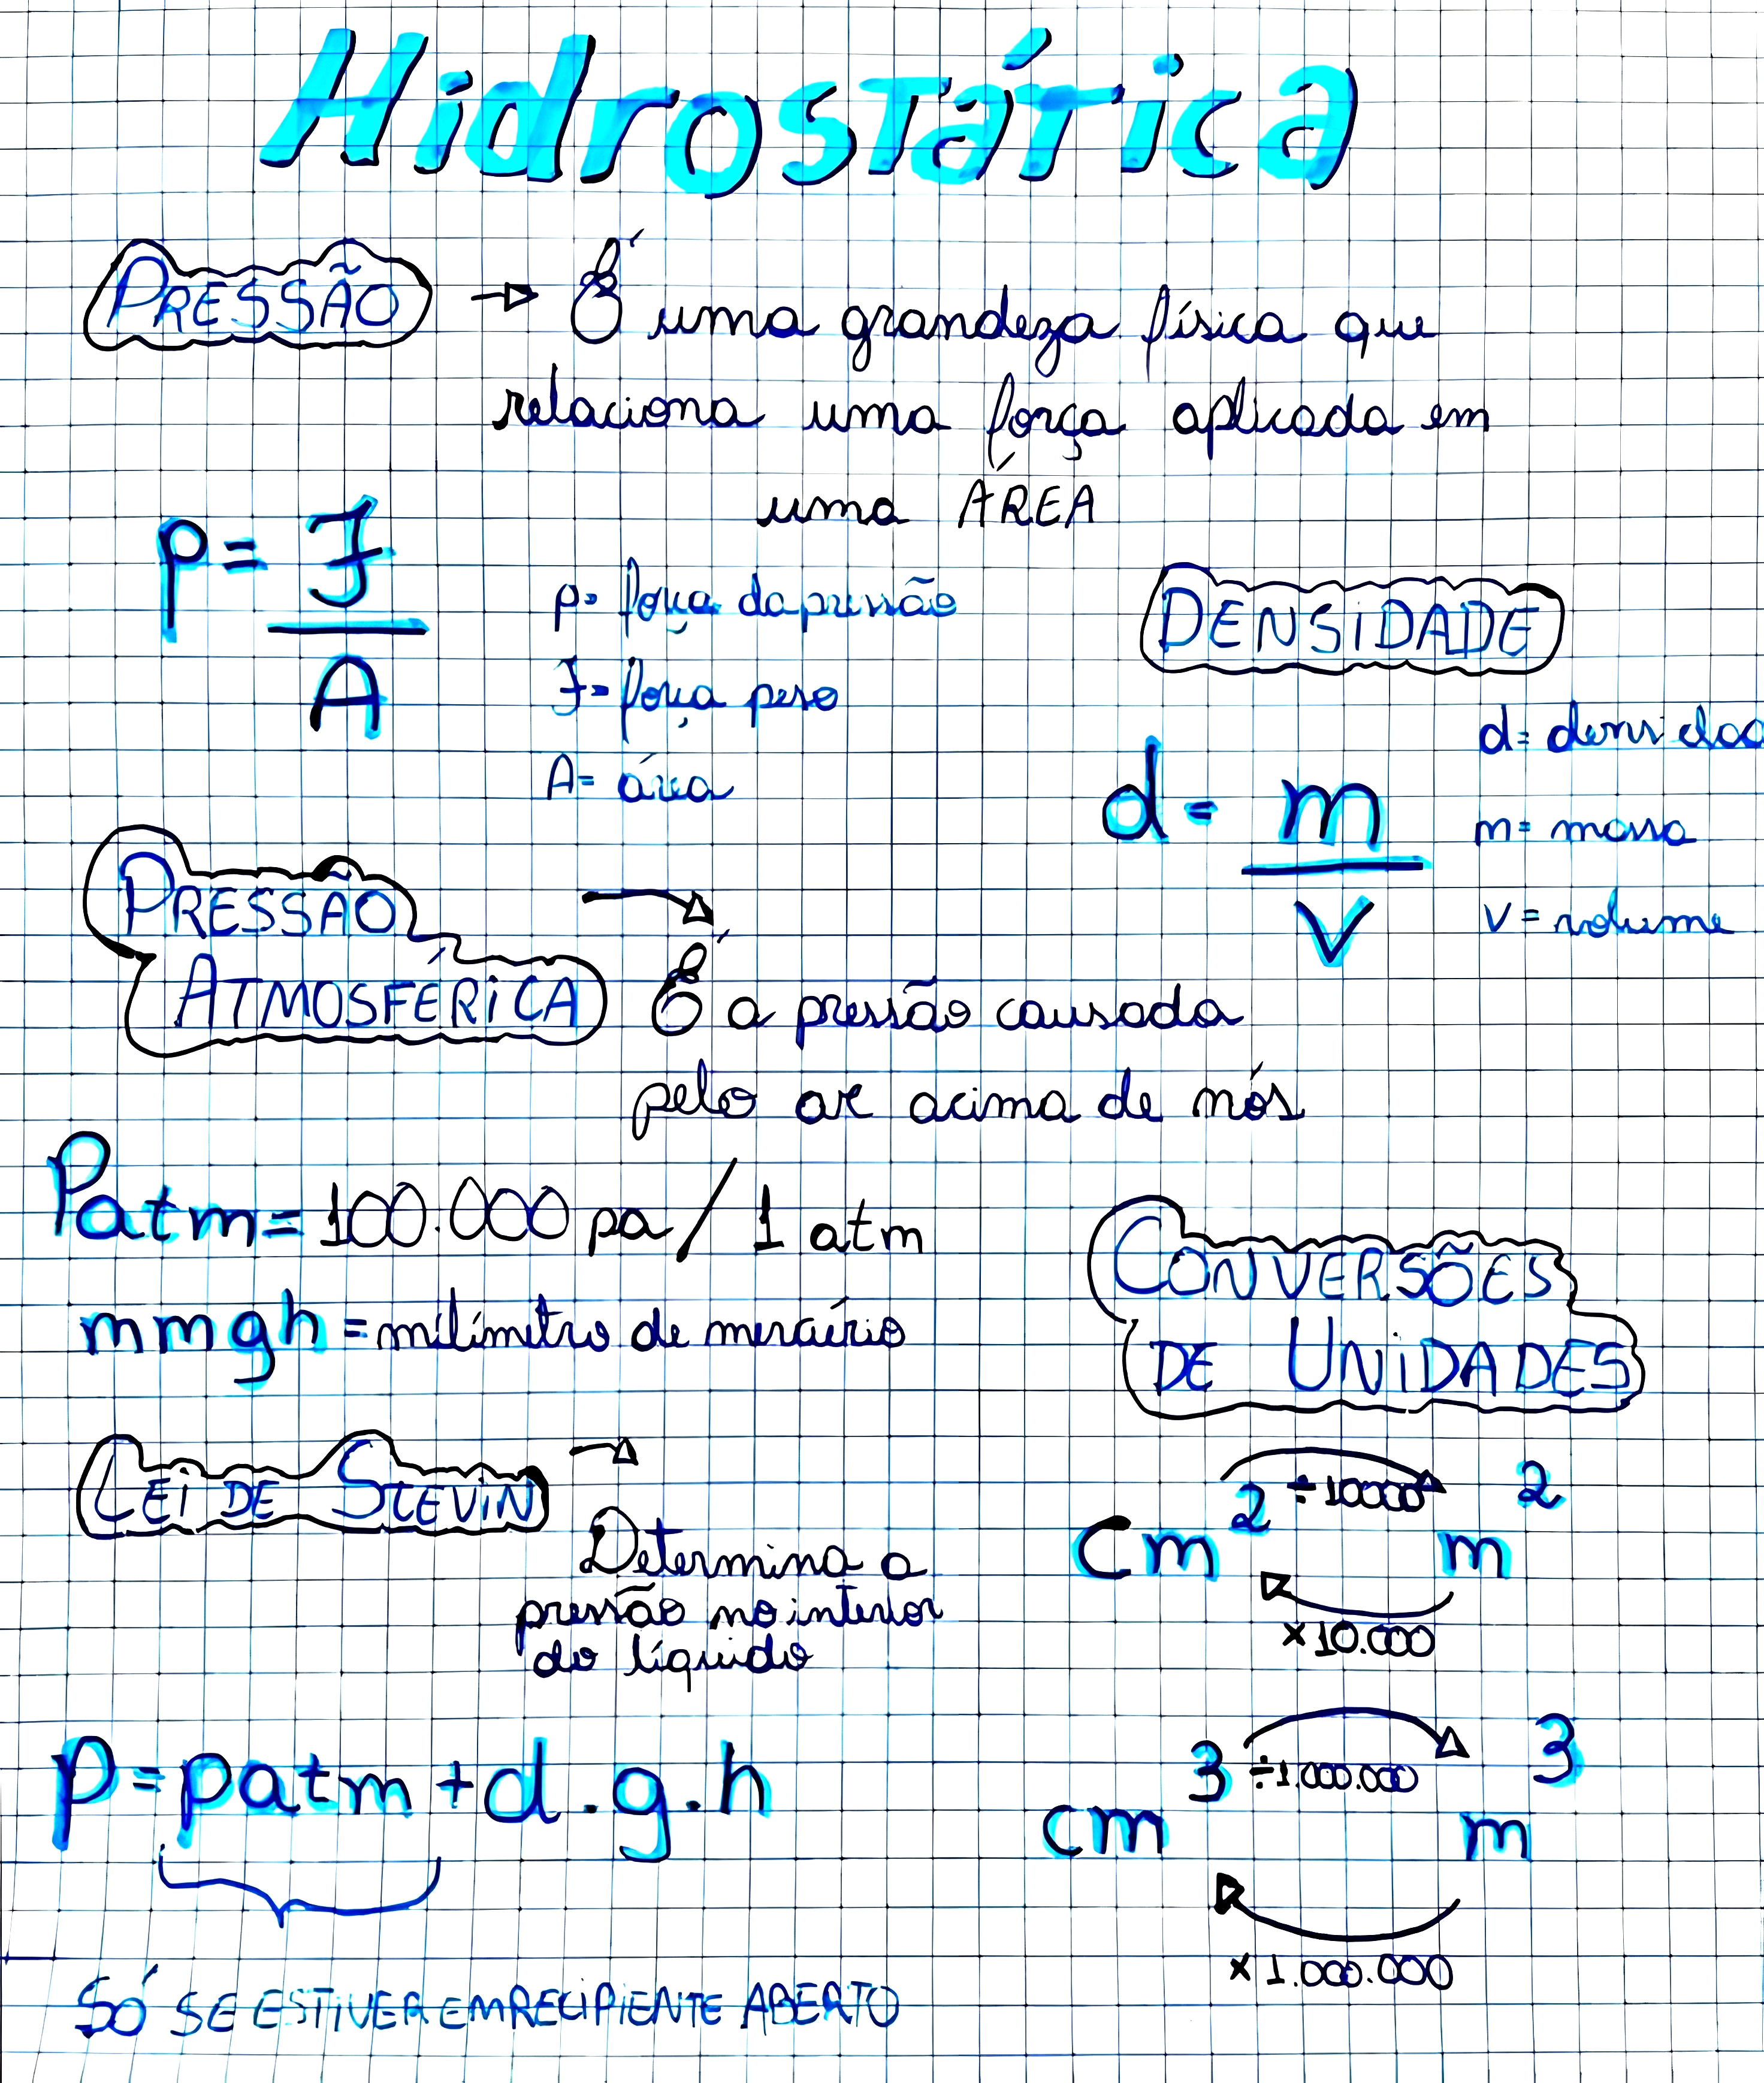 Hidrostática
PRESSÃO → É uma grandeza física que
relaciona uma força aplicada em
uma ÁREA
p = F
A
p= força da pressão
F= força peso
A= área
DENSIDADE
d = m
V
d= densidad
m= massa
V= volume
PRESSÃO
ATMOSFÉRICA
É a pressão causada
pelo ar acima de nós
Patm = 100.000 pa / 1 atm
mmgh = milímetro de mercúrio
LEI DE STEVIN →
Determina a
pressão no interior
do líquido
p = patm + d.g.h
SÓ SE ESTIVER EM RECIPIENTE ABERTO
CONVERSÕES
DE UNIDADES
÷10000
cm² m²
×10.000
÷1.000.000
cm³ m³
×1.000.000